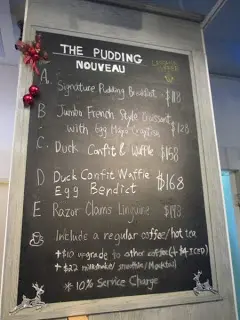 THE PUDDING
NOUVEAU
A. Signature Pudding Breakfast $118
B Jumbo French Style Croissant
with Egg Mayo Crabstick $128
C. Duck Confit & Waffle $168
D Duck Confit Waffle
Egg Bendict $168
E Razor Clams Linguine $148
Include a regular coffee/hot tea
+$10 upgrade to other coffee (+$4 ICED)
+ $22 milkshake/ smoothie/Mocktail
* 10% Service Charge